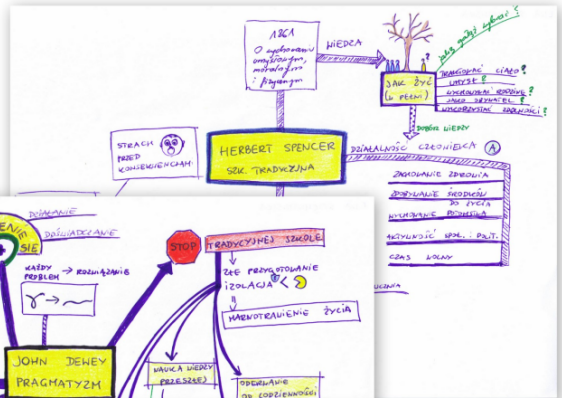 1861
O wychowaniu
umysłowym,
moralnym
i fizycznym
WIEDZA
jaką gałąź wybrać?
JAK ŻYĆ
(w PEŁNI)
?
TRAKTOWAĆ CIAŁO?
UMYSŁ?
WYCHOWYWAĆ RODZINĘ?
JAKO OBYWATEL?
WYKORZYSTAĆ ZDOLNOŚCI?
DOBÓR WIEDZY
STRACH
PRZED
KONSEKWENCJAMI
HERBERT SPENCER
SZK. TRADYCYJNA
DZIAŁALNOŚCI CZŁOWIEKA
A
ZACHOWANIE ZDROWIA
ZDOBYWANIE ŚRODKÓW
DO ŻYCIA
WYCHOWANIE POTOMSTWA
AKTYWNOŚĆ SPOŁ. i POLIT.
CZAS WOLNY
UCZNIA
ENIE
SIĘ
DZIAŁANIE
DOŚWIADCZANIE
KAŻDY
PROBLEM → ROZWIĄZANIE
JOHN DEWEY
PRAGMATYZM
STOP
TRADYCYJNEJ SZKOLE
ZŁE PRZYGOTOWANIE
IZOLACJA
MARNOTRAWIENIE ŻYCIA
NAUKA WIEDZY
PRZESZŁEJ
ODERWANIE
OD CODZIENNOŚCI